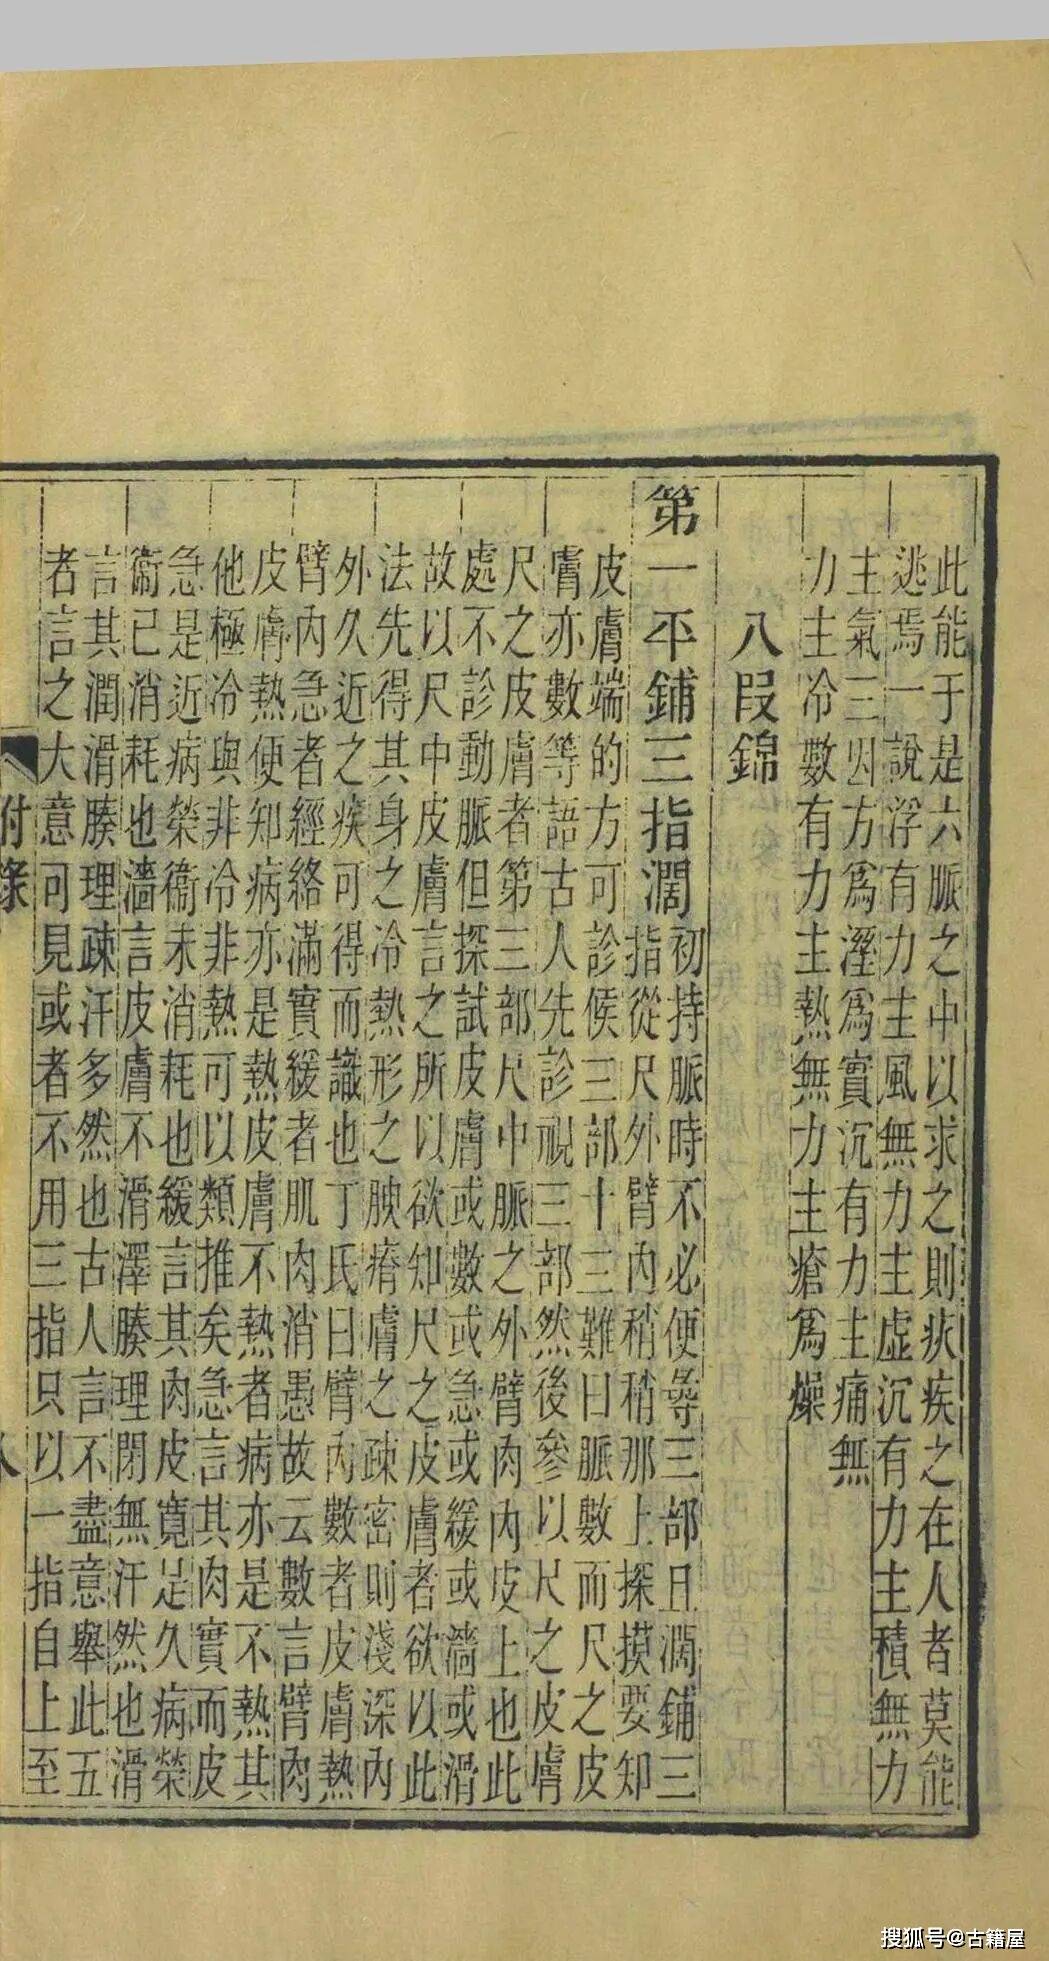 此能于是六脈之中以求之則疢疾之在人者莫能
逃焉一說浮有力主風無力主虛沉有力主積無力
主氣三因方爲溼爲實沉有力主痛無
力主冷數有力主熱無力主瘡爲燥
八段錦
第一平鋪三指濶
初持脈時不必便尋三部且濶鋪三
指從尺外臂內稍稍那上探摸要知
皮膚端的方可診候三部十三難曰脈數而尺之皮
膚亦數等語古人先診視三部然後參以尺之皮膚
尺之皮膚者第三部尺中脈之外臂肉內皮上也此
處不診動脈但探試皮膚或數或急或緩或濇或滑
故以尺中皮膚言之所以欲知尺之皮膚者欲以此
法先得其身之冷熱形之腴瘠膚之疎密則淺深內
外久近之疾可得而識也丁氏曰臂內數者皮膚熱
臂內急者經絡滿實緩者肌肉消愚故云數言臂肉
皮膚熱便知病亦是熱皮膚不熱者病亦是不熱其
他極冷與非冷非熱可以類推矣急言其肉實而皮
急是近病榮衞未消耗也緩言其肉皮寬是久病榮
衞已消耗也濇言皮膚不滑澤腠理閉無汗然也滑
言其潤滑腠理疎汗多然也古人言不盡意舉此五
者言之大意可見或者不用三指只以一指自上至
附錄
八
搜狐号@古籍屋